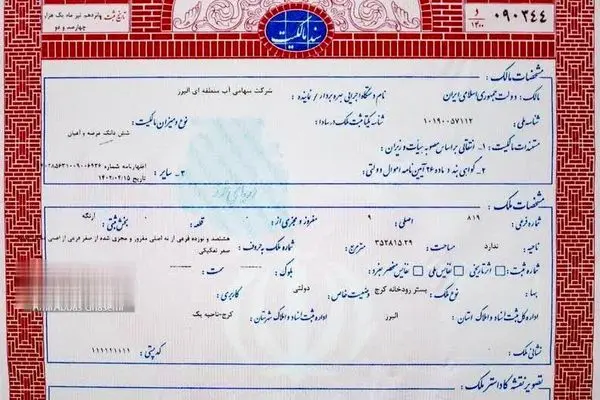 ۰۹۰۳۴۴
د
۱۴۰۰
سند مالکیت
تاریخ ثبت پانزدهم تیر ماه یک هزار
چهارصد و دو
مشخصات مالک :
مالک : دولت جمهوری اسلامی ایران
نام دستگاه اجرایی بهره بردار / نماینده :
شرکت سهامی آب منطقه ای البرز
شناسه ملی : ۱۰۱۹۰۰۵۷۱۱۲
شناسه یکتا ثبت ملک در سادا :
نوع و میزان مالکیت :
شش دانگ عرصه و اعیان
مستندات مالکیت : ۱- انتقالی بر اساس مصوبه هیأت وزیران :
۲- گواهی بند د ماده ۲۶ آیین نامه اموال دولتی :
۳- سایر :
تاریخ ۱۴۰۲/۰۲/۱۵
مشخصات ملک :
شماره فرعی : ۸۱۹
اصلی : ۹
مفروز و مجزی از :
قطعه :
بخش ثبتی :
ناحیه : ندارد
مساحت : ۳۵۲۸۱۵.۲۹ مترمربع :
شماره ملک به حروف :
هشتصد و نوزده فرعی از نه اصلی مفروز و مجزی شده از صفر فرعی از اصلی
صفر تفکیکی
شماره ثبت :
اثر تاریخی
نفایس ملی
نفایس منحصر بفرد
بلوک :
سمت :
بها :
نوع ملک : بستر رودخانه کرج
وضعیت خاص :
دولتی
کاربری :
اداره کل ثبت اسناد و املاک استان : البرز
اداره ثبت اسناد و املاک شهرستان :
کرج-ناحیه یک
نشانی ملک :
کدپستی : ۱۱۱۱۲۱۱۱۱
تصویر نقشه کاداستر ملک :